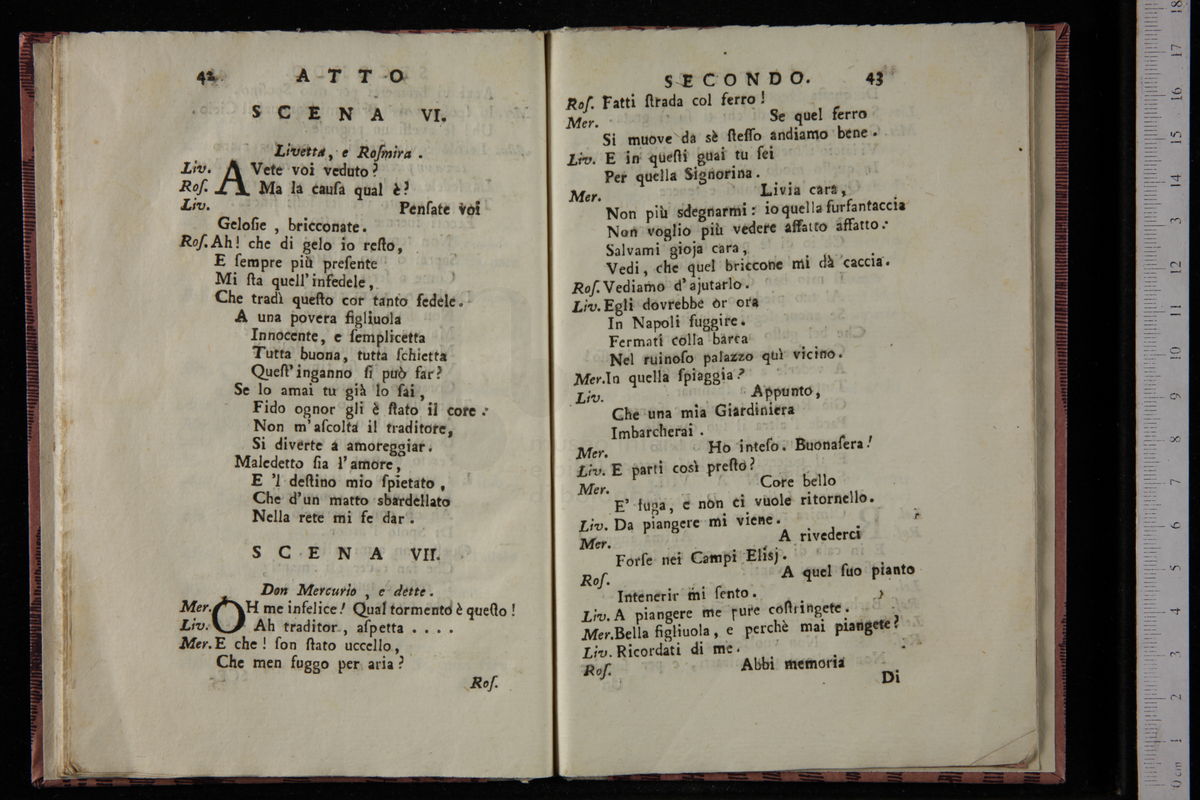 42 ATTO
SCENA VI.
Livetta, e Roſmira.
Liv. AVete voi veduto?
Roſ. Ma la cauſa qual è?
Liv. Penſate voi
Geloſie, bricconate.
Roſ. Ah! che di gelo io reſto,
E ſempre più preſente
Mi ſta quell'infedele,
Che tradì queſto cor tanto fedele.
A una povera figliuola
Innocente, e ſemplicetta
Tutta buona, tutta ſchietta
Queſt'inganno ſi può far?
Se lo amai tu già lo ſai,
Fido ognor gli è ſtato il core:
Non m'aſcolta il traditore,
Si diverte a amoreggiar.
Maledetto ſia l'amore,
E 'l deſtino mio ſpietato,
Che d'un matto sbardellato
Nella rete mi fe dar.
SCENA VII.
Don Mercurio, e dette.
Mer. OH me infelice! Qual tormento è queſto!
Liv. Ah traditor, aſpetta ....
Mer. E che! ſon ſtato uccello,
Che men fuggo per aria?
Roſ.
SECONDO. 43
Roſ. Fatti ſtrada col ferro!
Mer. Se quel ferro
Si muove da sè ſteſſo andiamo bene.
Liv. E in queſti guai tu ſei
Per quella Signorina.
Mer. Livia cara,
Non più sdegnarmi: io quella furfantaccia
Non voglio più vedere affatto affatto:
Salvami gioja cara,
Vedi, che quel briccone mi dà caccia.
Roſ. Vediamo d'ajutarlo.
Liv. Egli dovrebbe or ora
In Napoli fuggire.
Fermati colla barca
Nel ruinoſo palazzo quì vicino.
Mer. In quella ſpiaggia?
Liv. Appunto,
Che una mia Giardiniera
Imbarcherai.
Mer. Ho inteſo. Buonaſera!
Liv. E parti così preſto?
Mer. Core bello
E' fuga, e non ci vuole ritornello.
Liv. Da piangere mi viene.
Mer. A rivederci
Forſe nei Campi Elisj.
Roſ. A quel ſuo pianto
Intenerir mi ſento.
Liv. A piangere me pure coſtringete.
Mer. Bella figliuola, e perchè mai piangete?
Liv. Ricordati di me.
Roſ. Abbi memoria
Di
0 cm 1 2 3 4 5 6 7 8 9 10 11 12 13 14 15 16 17 18